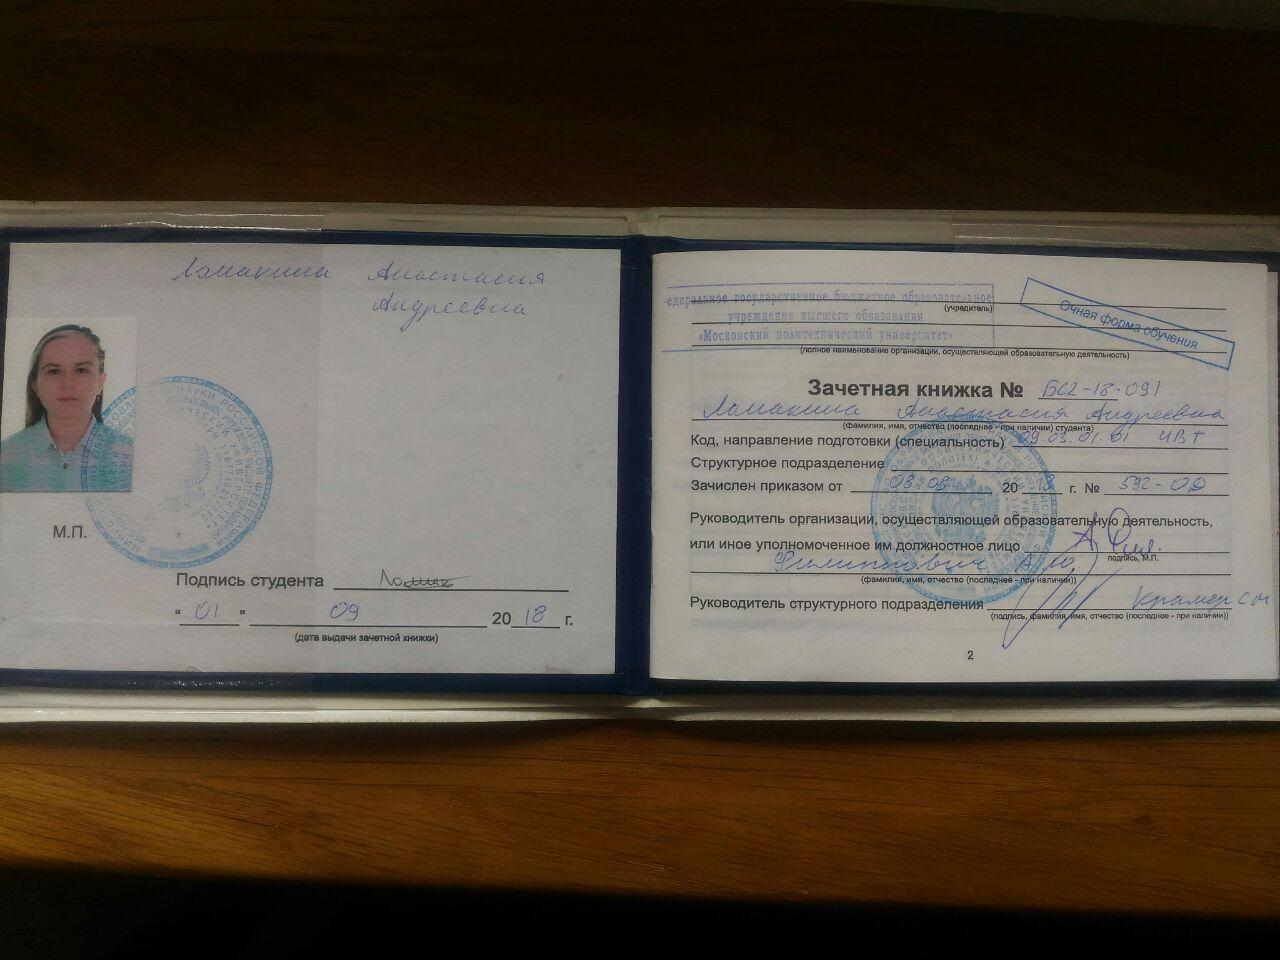 Ломакина Анастасия
Андреевна
М.П.
Подпись студента
"01" 09 2018 г.
(дата выдачи зачетной книжки)
Федеральное государственное бюджетное образовательное
(учредитель)
учреждение высшего образования
«Московский политехнический университет»
Очная форма обучения
(полное наименование организации, осуществляющей образовательную деятельность)
Зачетная книжка № БС2-18-091
Ломакина Анастасия Андреевна
(фамилия, имя, отчество (последнее - при наличии) студента)
Код, направление подготовки (специальность) 09.03.01.01 ИВТ
Структурное подразделение
Зачислен приказом от 03.08 20 г. № 592-ОД
Руководитель организации, осуществляющей образовательную деятельность,
или иное уполномоченное им должностное лицо
подпись, М.П.
Филиппович А.Ю.
(фамилия, имя, отчество (последнее - при наличии))
Руководитель структурного подразделения Крамер
(подпись, фамилия, имя, отчество (последнее - при наличии))
2